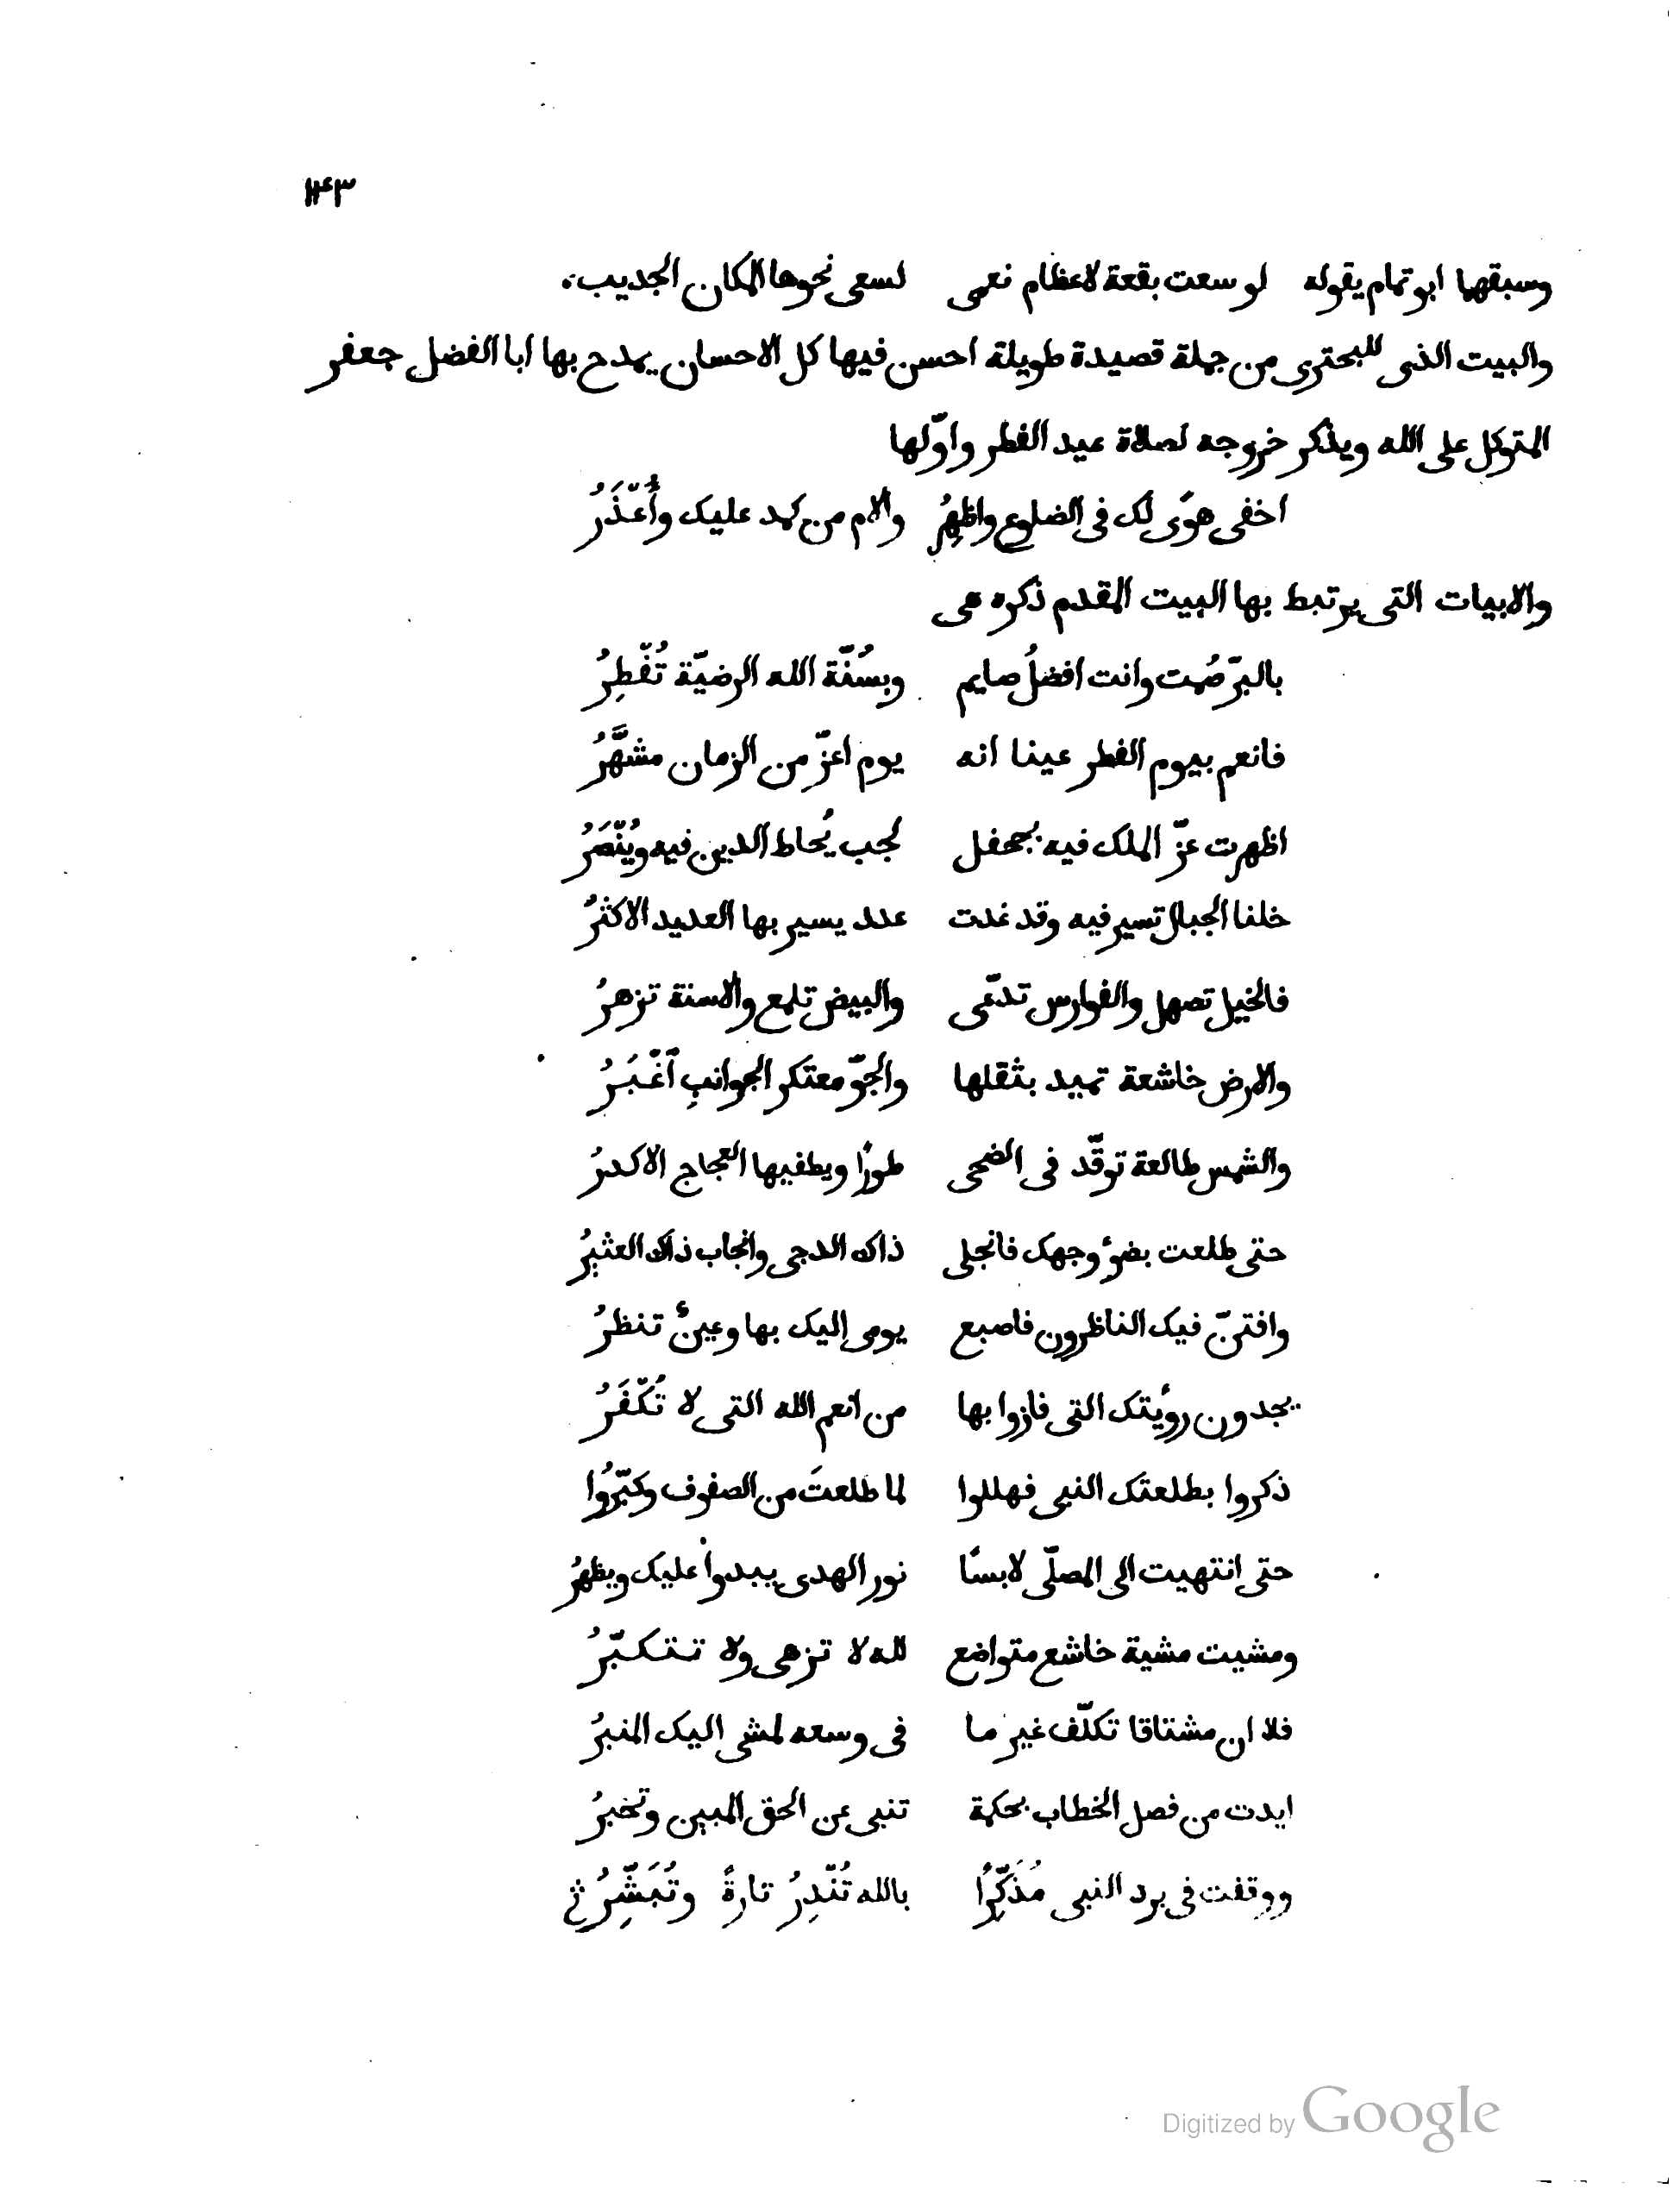 ١٤٣
وسبقهما ابو تمام بقوله لو سعت بقعة لاعظام نعمى لسعى نحوها المكان الجديب.
والبيت الذى للبحترى من جملة قصيدة طويلة احسن فيها كل الاحسان يمدح بها ابا الفضل جعفر
المتوكل على الله ويذكر خروجه لصلاة عيد الفطر واوّلها
اخفى هوًى لك فى الضلوع واظهِرُ والام من كمد عليك وأُعْذَرُ
والابيات التى يرتبط بها البيت المقدم ذكره هى
بالبرّ صُمت وانت افضلُ صايم وبسُنّة الله الرضيّة تُفْطِرُ
فانعم بيوم الفطر عينا انه يوم اعزّ من الزمان مشهَّرُ
اظهرت عزّ الملك فيه بجحفل لجب يُحاط الدين فيه ويُنْصَرُ
خلنا الجبال تسير فيه وقد غدت عدد يسير بها العديد الاكثرُ
فالخيل تصهل والفوارس تدّعى والبيض تلمع والاسنة تزهرُ
والارض خاشعة تميد بثقلها والجوّ معتكر الجوانبِ أَغْبَرُ
والشمس طالعة توقّد فى الضحى طورًا ويطفيها العجاج الاكدرُ
حتى طلعت بضوٴ وجهك فانجلى ذاك الدجى وانجاب ذاك العثيرُ
وافتنّ فيك الناظرون فاصبع يومى إليك بها وعينٌ تنظرُ
يجدون روٴيتك التى فازوا بها من انعم الله التى لا تُكْفَرُ
ذكروا بطلعتك النبى فهللوا لما طلعتَ من الصفوف وكبّرُوا
حتى انتهيت الى المصلّى لابسًا نور الهدى يبدوا عليك ويظهرُ
ومشيت مشية خاشع متواضع لله لا تزهى ولا تتكبّرُ
فلا ان مشتاقا تكلّف غير ما فى وسعه لمشى اليك المنبرُ
ايدت من فصل الخطاب بحكمة تنبى عن الحق المبين وتخبرُ
ووقفت فى برد النبى مُذَكِّرًا بالله تُنْذِرُ تارةً وتُبَشِّرُ
Digitized by Google